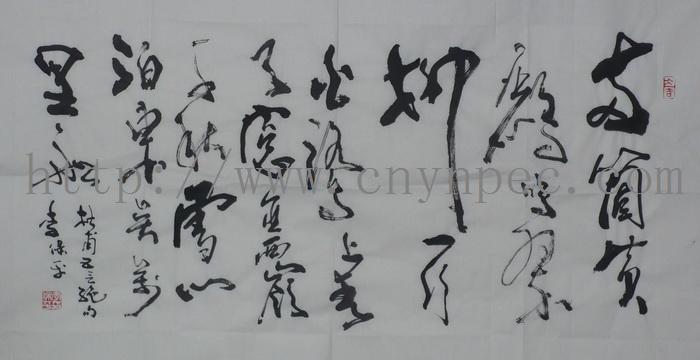 两箇黄
鸝鳴翠
柳一行
白鷺上青
天窗含西嶺
千秋雪门
泊東吴萬
里船
杜甫五言绝句
http://www.cnynpec.com